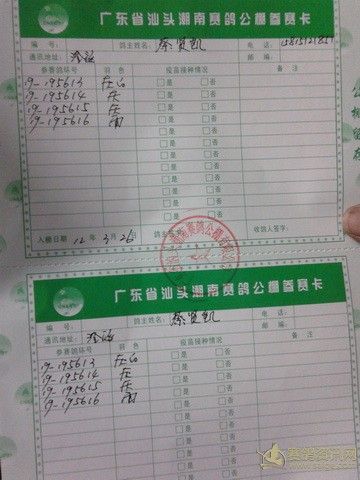 广东省汕头湖南赛鸽公棚参赛卡
编号： 鸽主姓名：蔡贤凯 电话：
通讯地址： 邮编：
参赛鸽环号 羽色 疫苗接种情况 备注
19-195613 □是 □否
19-195614 灰 □是 □否
19-195615 灰 □是 □否
19-195616 雨 □是 □否
□是 □否
□是 □否
□是 □否
□是 □否
□是 □否
□是 □否
入棚日期 12年3月26日 鸽主签字： 收鸽人签字：
广东省汕头湖南赛鸽公棚参赛卡
编号： 鸽主姓名：蔡贤凯 电话：
通讯地址： 邮编：
参赛鸽环号 羽色 疫苗接种情况 备注
19-195613 □是 □否
19-195614 灰 □是 □否
19-195615 灰 □是 □否
19-195616 雨 □是 □否
□是 □否
□是 □否
□是 □否
□是 □否
赛鸽资讯网